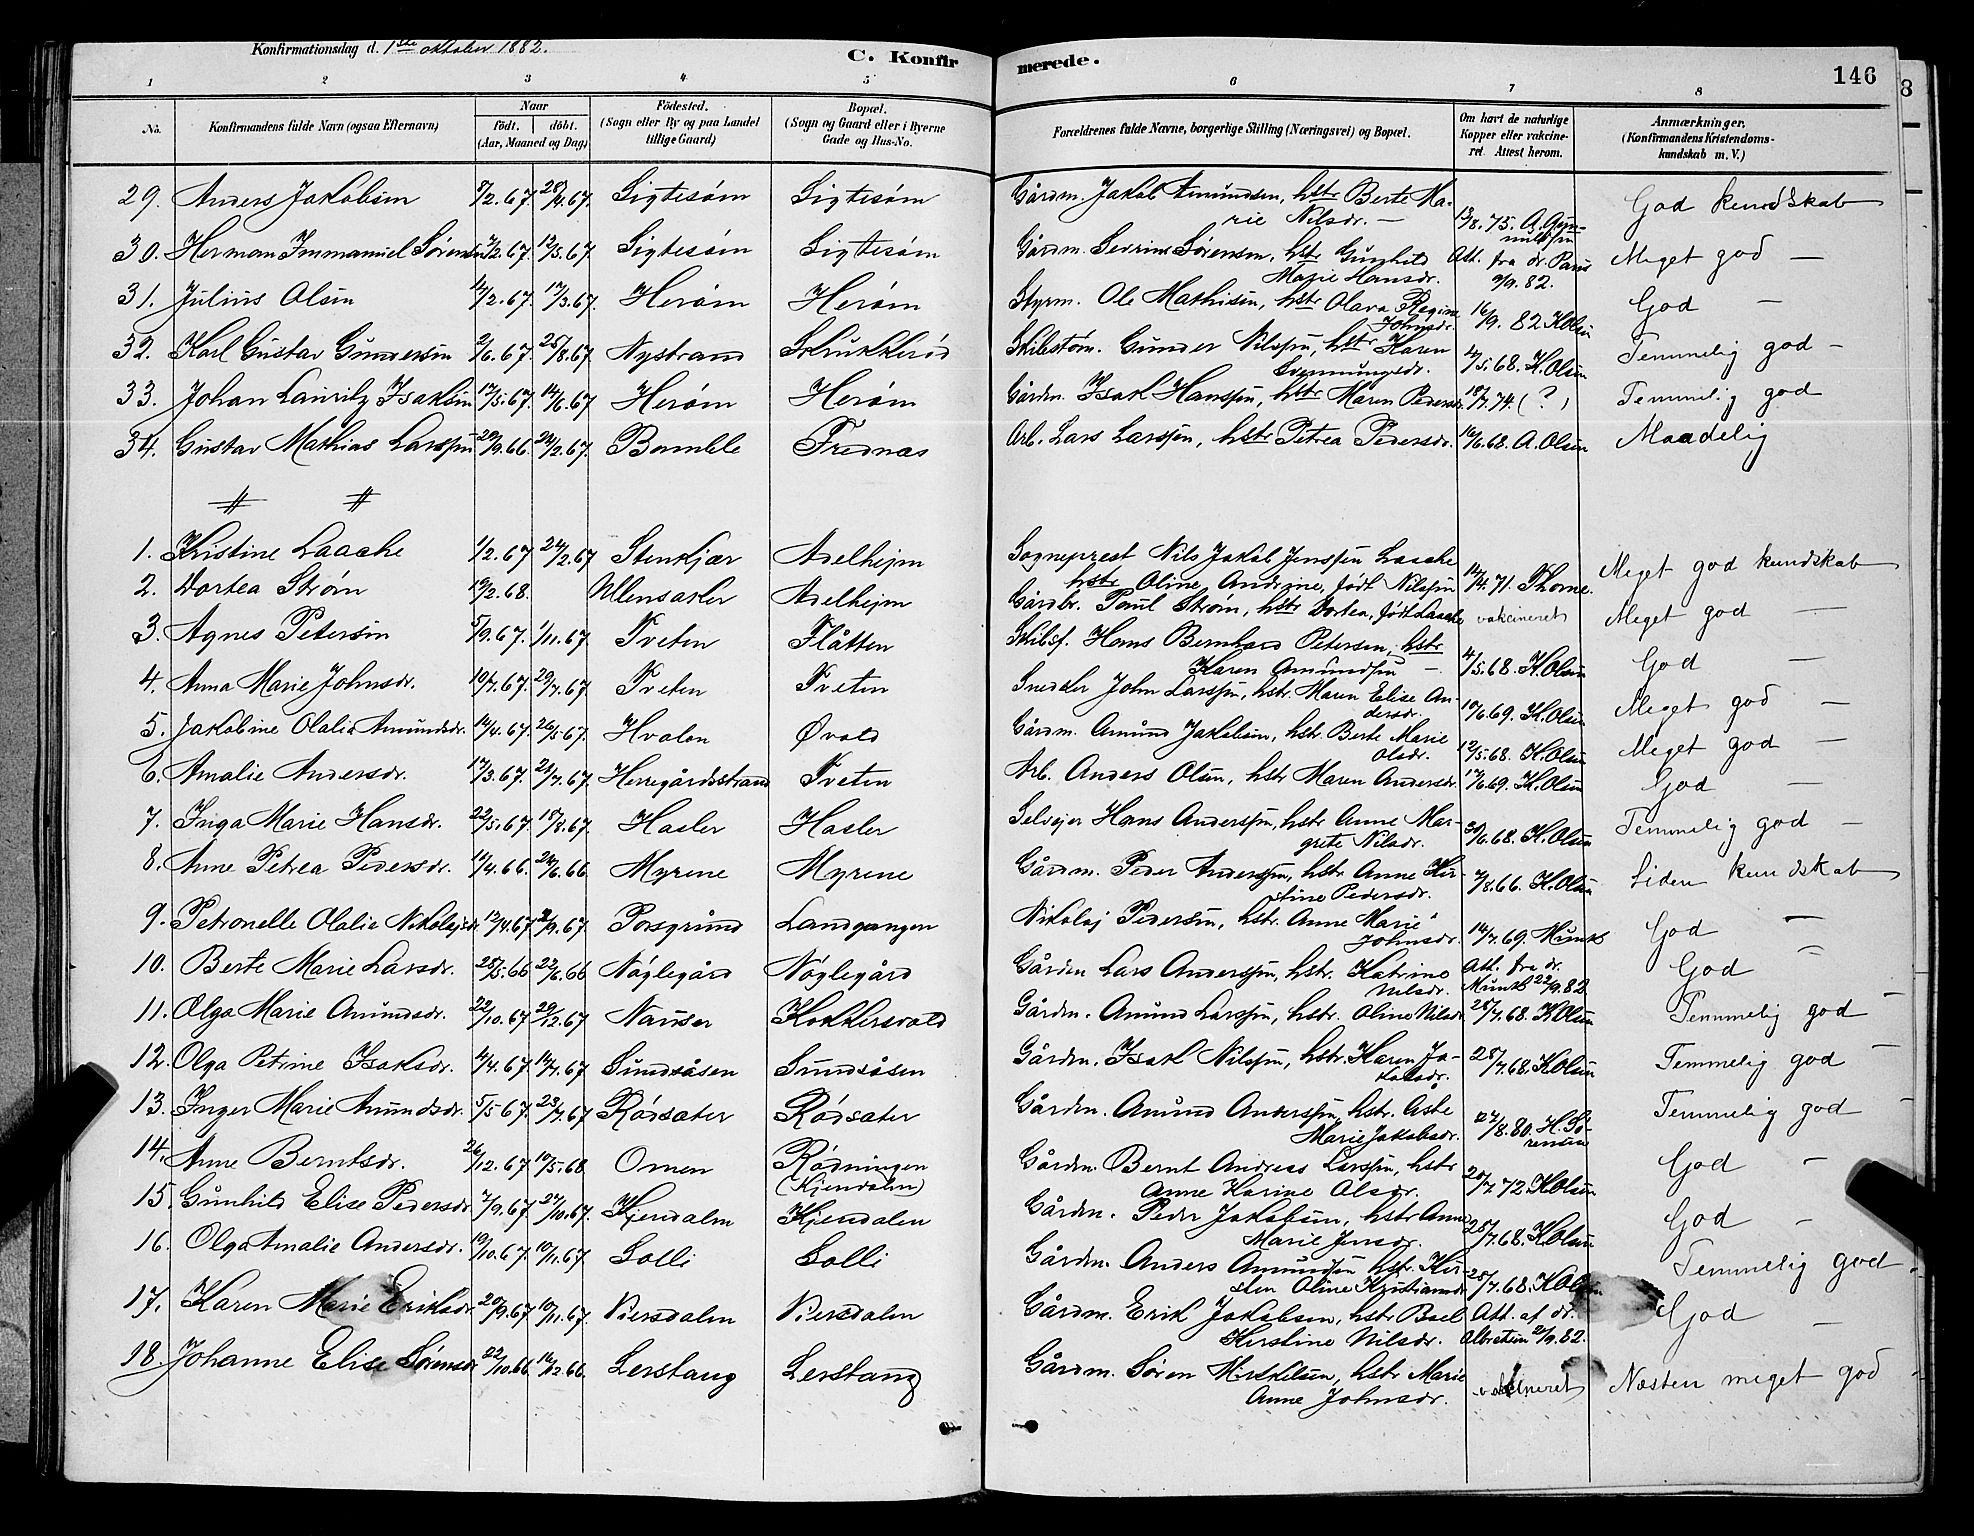 Konfirmationsdag d. 1ste oktober 1882.
C. Konfirmerede.
146
1 2 3 4 5 6 7 8
No. Konfirmandens fulde Navn (ogsaa Efternavn) Naar födt. döbt. (Aar, Maaned og Dag) Födested. (Sogn eller By og paa Landet tillige Gaard) Bopæl. (Sogn og Gaard eller i Byerne Gade og Hus-No. Forældrenes fulde Navne, borgerlige Stilling (Næringsvei) og Bopæl. Om havt de naturlige Kopper eller vakcineret. Attest herom. Anmærkninger, (Konfirmandens Kristendomskundskab m. V.)
29. Anders Jakobsen 8/2.67. 28/4.67. Sigtesøm Sigtesøm Gårdm. Jakob Amundsen, hstr Berte Marie Nilsdr. — 13/8.75. God kundskab
30. Herman Immanuel Sørensen 3/2.67. 12/5.67. Sigtesøm Sigtesøm Gårdm. Severin Sørensen, hstr Gunhild Marie Hansdr. Att. fra dr. Paus 9/9.82. Meget god —
31. Julius Olsen 14/2.67. 17/3.67. Herøm Herøm Styrm. Ole Mathisen, hstr Olava Regine Johnsdr. 16/9. 82 K Olsen God —
32. Karl Gustav Gundersen 2/6.67. 25/8.67. Nystrand Skrukkerød Skibstøm. Gunder Nilssen, hstr Karen Svennungsdr. 4/5.68. K. Olsen Temmelig god —
33. Johan Lauritz Isaksen 17/5.67. 14/6.67. Herøm Herøm Gårdm. Isak Hanssen, hstr Maren Pedersdr. 18/7.74. (?) Temmelig god
34. Gustav Mathias Larssen 29/9.66. 24/2.67. Bamble Frednæs Arb. Lars Larssen, hstr Petrea Pedersdr. 16/6.68. A. Olsen Maadelig
1. Kristine Laache 1/2.67. 24/2.67 Stenkjær Adelhejm Sogneprest Nils Jakob Jenssen Laache hstr Oline Andrine, født Nilssen 14/4.71. Thorne. Meget god kundskab
2. Dortea Strøm 19/2.68. Ullensaker Adelhejm Gårdbr. Poul Strøm, hstr Dortea, født Laache vakcineret Meget god —
3. Agnes Petersen 5/9.67. 1/11.67. Tveten Flåtten Skibsf. Hans Bernhard Petersen, hstr Karen Amundsen — 4/5.68. K. Olsen God —
4. Anna Marie Johnsdr. 10/7.67. 29/7.67 Tveten Tveten Snedker John Larssen, hstr. Maren Elise Andersdr. 10/6.69. K. Olsen Meget god —
5. Jakobine Olalie Amundsdr. 14/4.67. 26/5.67. Hvalen Øvald Gårdm. Amund Jakobsen, hstr Berte Marie Olsdr. 12/5.68. K. Olsen Meget god —
6. Amalie Andersdr. 17/3.67. 21/7.67. Herregårdsstrand Tveten Arb. Anders Olsen, hstr Maren Andersdr. 17/6.69. K. Olsen God —
7. Inga Marie Hansdr. 22/5.67. 18/8.67. Hasler Hasler Selvejer Hans Anderssen, hstr Anne Margrete Nilsdr. 30/6.68. K. Olsen Temmelig god —
8. Anne Petrea Pedersdr. 19/4.66. 24/6.66 Myrene Myrene Gårdm. Peder Anderssen, hstr Anne Kirstine Pedersdr. 7/8.66. K. Olsen Liden kundskab
9. Petronelle Olalie Nikolajsdr. 12/4.67 /9.67. Porsgrund Landgangen Nikolaj Pedersen, hstr. Anne Marie Johnsdr. 14/7.69. Munk God —
10. Berte Marie Larsdr. 28/5.66 22/6.66 Nøglegård Nøglegård Gårdm Lars Anderssen, hstr. Katrine Nilsdr. Att. fra dr. Munk 22/9 82 God —
11. Olga Marie Amundsdr. 22/10.67 29/12.67 Nauser Kokkersvold Gårdm. Amund Larssen, hstr. Oline Nilsdr. 28/7.68. K Olsen Temmelig god —
12. Olga Petrine Isaksdr. 4/4.67. 14/7.67 Sundsåsen Sundsåsen Gårdm. Isak Nilssen, hstr. Karen Jakobsdr. 28/7.68. K Olsen Temmelig god —
13. Inger Marie Amundsdr. 5/5 67. 23/7.67 Rødsæter Rødsæter Gårdm. Amund Anderssen, hstr. Aste Marie Jakobsdr. 27/8.80. H. Sørensen Temmelig god —
14. Anne Berntsdr. 26/12.67. 10/5.68 Omen Rødningen (Kjendalen) Gårdm. Bernt Andreas Larssen, hstr Anne Karine Olsdr. 20/7.72. K Olsen God —
15. Gunhild Elise Pedersdr. 7/9.67. 27/10.67. Kjendalen Kjendalen Gårdm. Peder Jakobsen, hstr Anne Marie Jensdr. 28/7.68. K Olsen God —
16. Olga Amalie Andersdr. 19/10.67. 10/11.67. Solli Solli Gårdm. Anders Amundsen hstr. Kirsten Oline Kristiansdr. 28/7.68. K Olsen Temmelig god.
17. Karen Marie Eriksdr. 20/9.67 10/11.67. Viersdalen Viersdalen Gårdm. Erik Jakobsen, hstr Boel Kirstine Nilsdr. Att. af dr. 21/9.82. God —
18. Johanne Elise Sørensdr. 22/10.66 16/12.66. Lerstang Lerstang Gårdm. Søren Mikkelsen, hstr Marie Anne Johnsdr. vakcineret Næsten meget god —